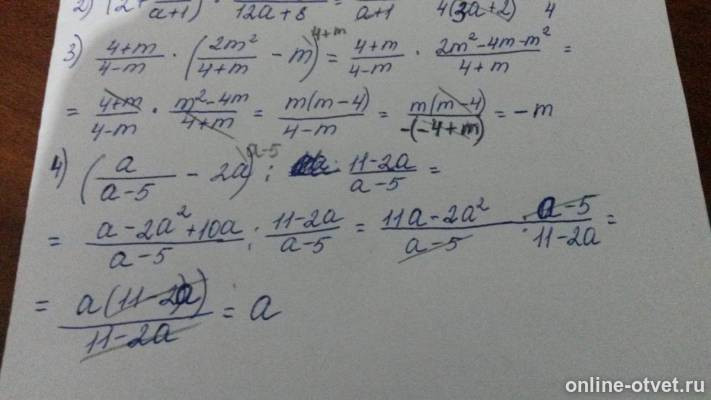 2) (2 + /a+1) · /12a+8 = /a+1 4(3a+2) 4
3) (4+m)/(4-m) · (2m²/(4+m) - m)^4+m = (4+m)/(4-m) · (2m²-4m-m²)/(4+m) =
= (4+m)/(4-m) · (m²-4m)/(4+m) = m(m-4)/(4-m) = m(m-4)/-(-4+m) = -m
4) (a/(a-5) - 2a)^a-5 : (11-2a)/(a-5) =
= (a-2a²+10a)/(a-5) : (11-2a)/(a-5) = (11a-2a²)/(a-5) · (a-5)/(11-2a) =
= a(11-2a)/(11-2a) = a
online-otvet.ru